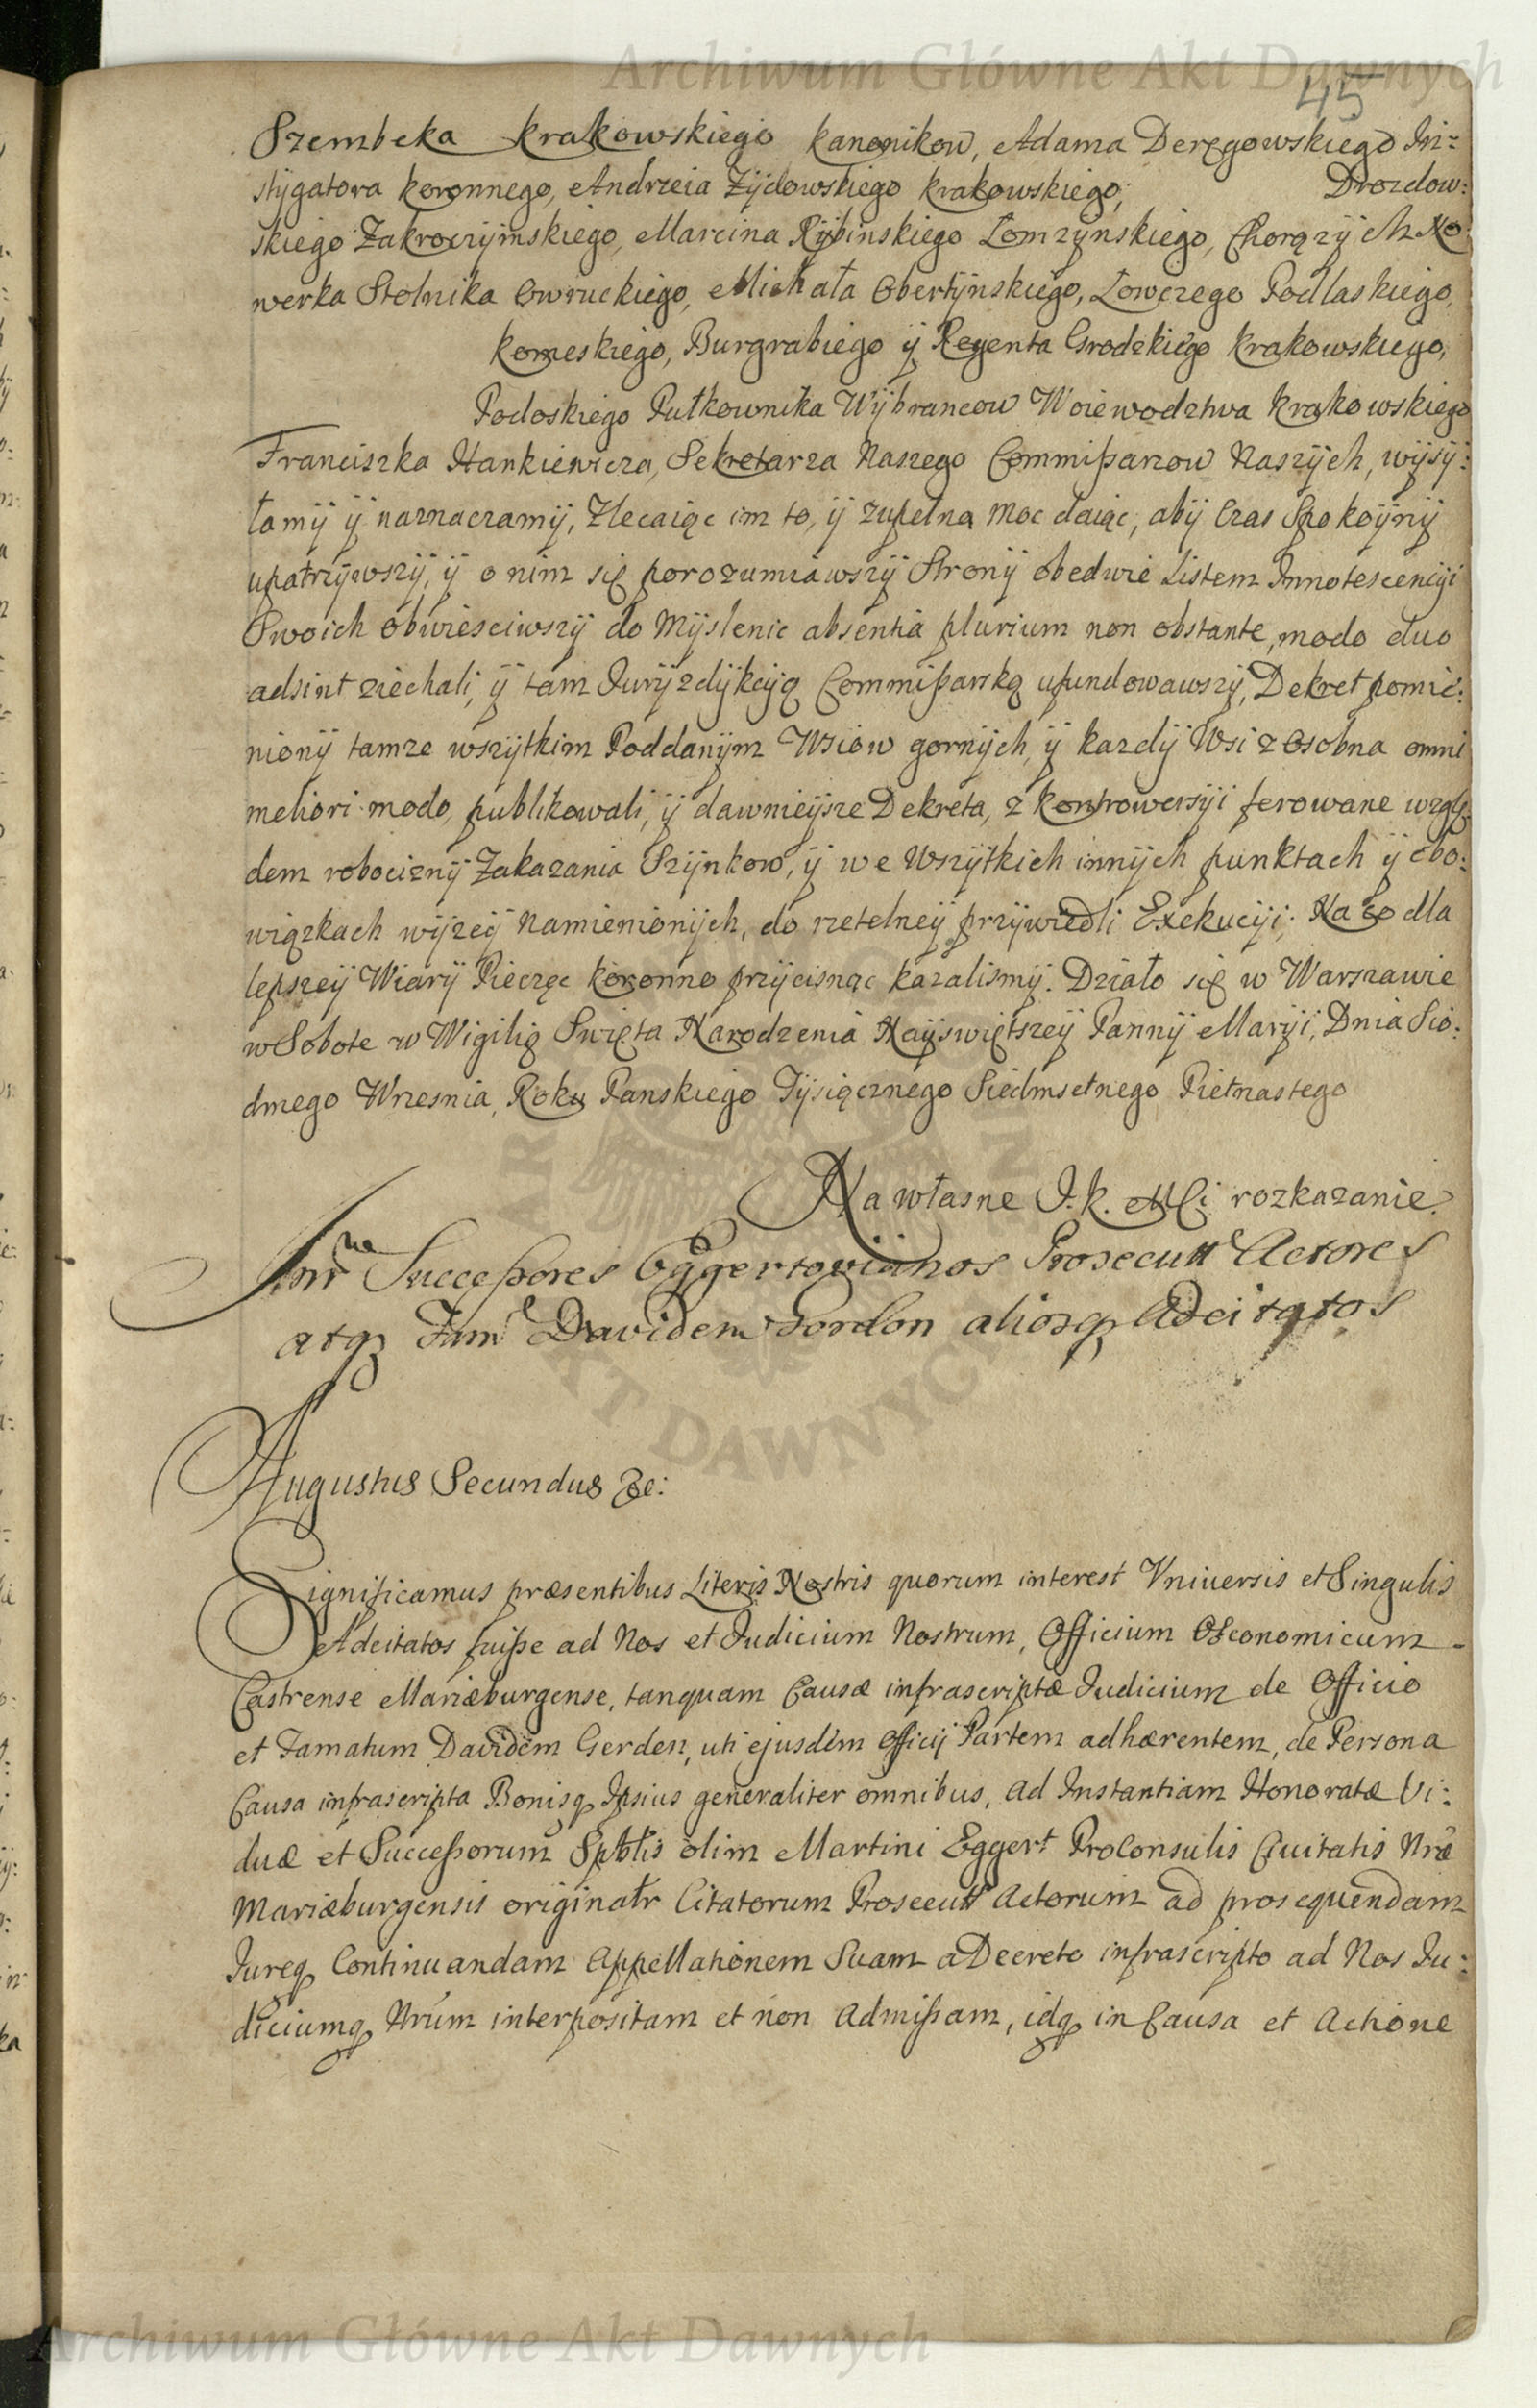 Archiwum Główne Akt Dawnych
45
Szembeka Krakowskiego Kanonikow, Adama Deręgowskiego In=
stygatora Koronnego, Andrzeia Zydowskiego Krakowskiego, Drozdow:
skiego Zakroczÿmskiego, Marcina Rÿbinskiego Łomzÿnskiego, Chorązÿch
werka Stolnika Owruckiego, Michała Obertÿnskiego, Łowczego Podlaskiego,
Komeskiego, Burgrabiego ÿ Regenta Grodzkiego Krakowskiego,
Podoskiego Pułkownika Wÿbrancow Woiewodztwa Krakowskiego
Franciszka Hankiewicza, Sekretarza Naszego Commißarzow Naszÿch, wÿsÿ:
łamÿ ÿ naznaczamÿ, Zlecaiąc im to, ÿ zupełną moc daiąc, abÿ Czas Spokoÿnÿ
upatrzÿwszÿ, ÿ o nim się porozumiawszÿ Stronÿ obedwie Listem Innotescencÿi
Swoich obwiesciwszÿ do Mÿslenic absentia plurium non obstante, modo duo
adsint ziechali, ÿ tam Jurÿzdÿkcÿą Commißarską ufundowawszÿ, Dekret pomie:
nionÿ tamze wszÿtkim Poddanÿm Wsiow gornÿch, ÿ kazdÿ Wsi z osobna omni
meliori modo, publikowali, ÿ dawnieÿsze Dekreta, z kontrowersÿi ferowane wzglę
dem robociznÿ Zakazania Szÿnkow, ÿ we Wszÿtkich innÿch punktach ÿ obo:
wiązkach wÿzeÿ namienionÿch, do rzetelneÿ przÿwiedli Exekucÿi; Na co dla
lepszeÿ Wiarÿ Pieczęc koronną przÿcisnąc kazalismÿ. Działo się w Warszawie
w Sobote w Wigilię Swięta Narodzenia Naÿswiętszeÿ Pannÿ Marÿi, Dnia Sió:
dmego Wrzesnia, Roku Panskiego Tÿsiącznego Siedmsetnego Pietnastego
Na własne J. K. Mci rozkazanie
Intr Succeßores Eggertovianos Prosecutt Actores
atq Fam Davidem Gordon aliosq Adcitatos
Augustus Secundus &c:
Significamus præsentibus Literis Nostris quorum interest Vniuersis et Singulis
Adcitatos fuiße ad Nos et Judicium Nostrum, Officium Oeconomicum
Castrense Mariæburgense, tanquam Causæ infrascriptæ Judicium de Officio
et Famatum Davidem Gerden, uti ejusdem Officij Partem adhærentem, de Persona
Causa infrascripta Bonisq Ipsius generaliter omnibus, ad Instantiam Honoratæ Vi:
duæ et Succeßorum Spblis olim Martini Eggert ProConsulis Ciuitatis Nræ
Mariæburgensis originalr Citatorum Prosecutt Actorum ad prosequendam
Jureq Continuandam Appellationem Suam a Decreto infrascripto ad Nos Ju:
diciumq Nrum interpositam et non Admißam, idq in Causa et Actione
Archiwum Główne Akt Dawnych